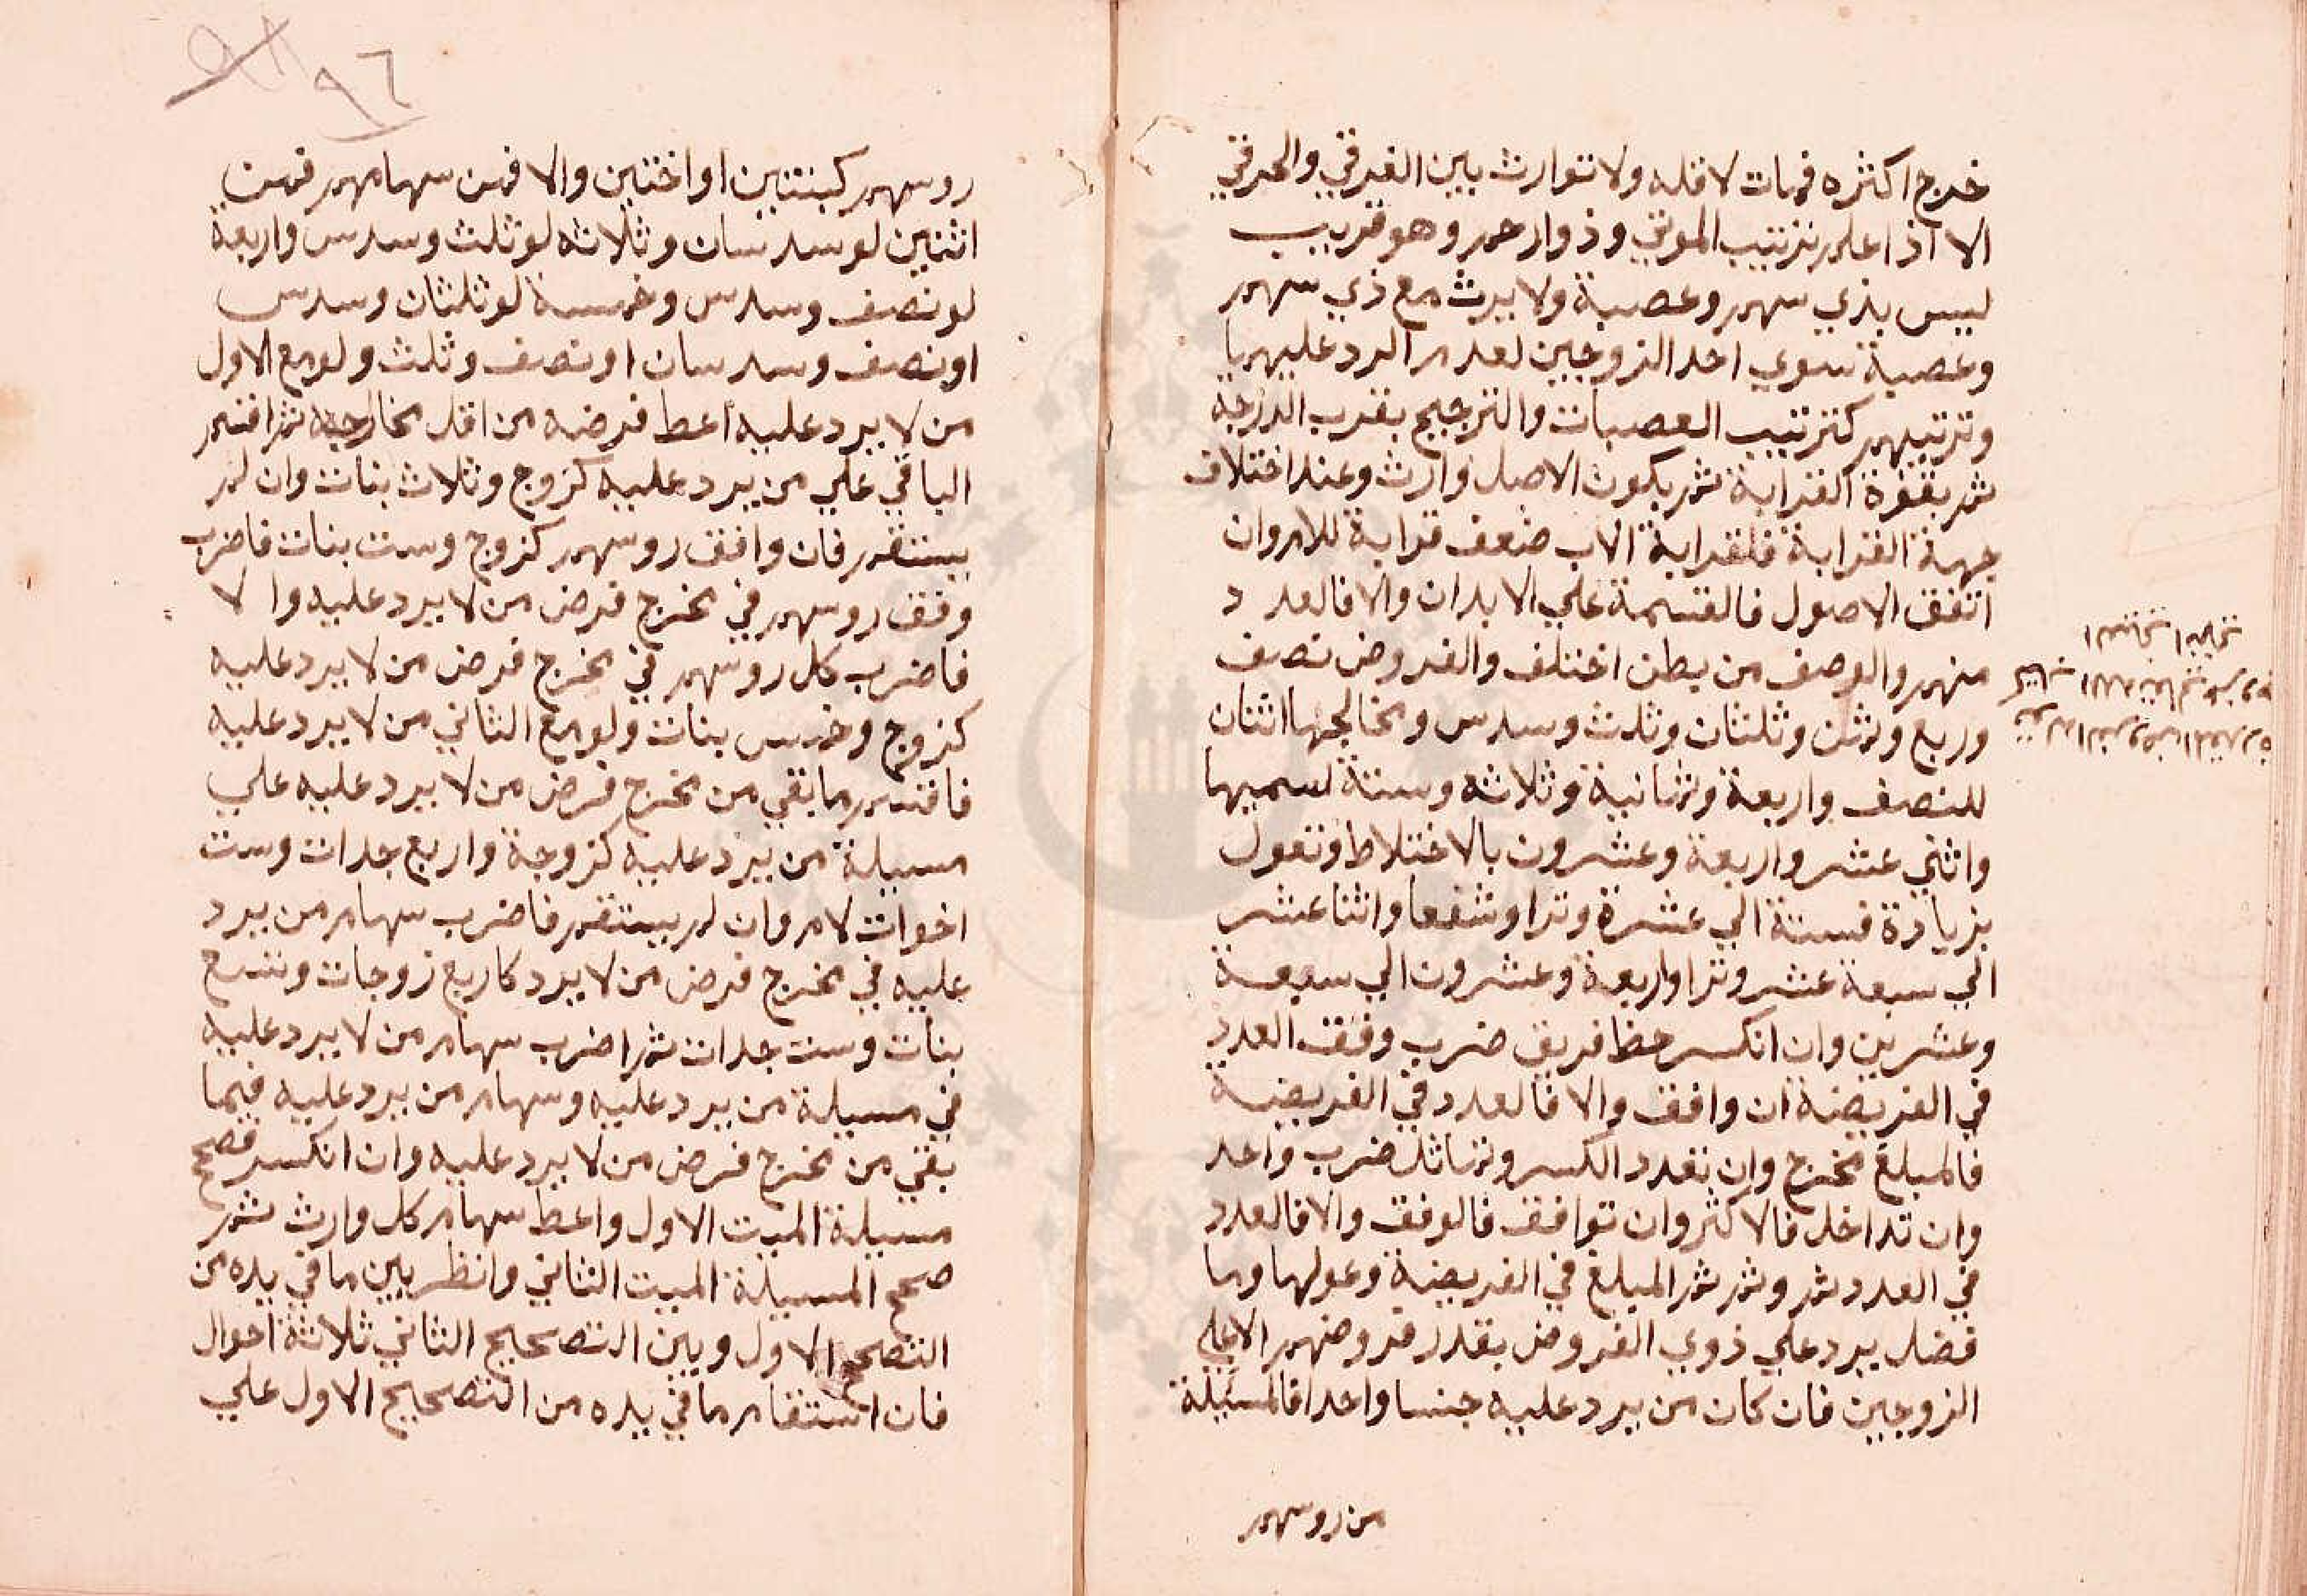 خرج اكثره فمات لا قله ولا توارث بين الغرقي والحرقي
الا اذا علم ترتيب الموتي وذوارحم وهو قريب
ليس بذي سهم وعصبة ولا يرث مع ذي سهم
وعصبة سوي احد الزوجين لعدم الرد عليهما
وترتيبهم كترتيب العصبات والترجيح بقرب الدرجة
ثم بقوة القرابة ثم بكون الاصل وارث وعند اختلاف
جهة القرابة فلقرابة الاب ضعف قرابة للام وان
اتفق الاصول فالقسمة علي الابدان والا فالعدد
منهم والوصف من بطن اختلف والفروض نصف
وربع وثمن وثلثان وثلث وسدس ومخالجها اثنان
للنصف واربعة وثمانية وثلاثه وستة لسميها
واثني عشر واربعة وعشرون بالاختلاط وتعول
بزيادة فستة الي عشرة وترا وشفعا واثنا عشر
الي سبعة عشر وترا واربعة وعشرون الي سبعة
وعشرين وان انكسر حظ فريق ضرب وفق العدد
في الفريضة ان وافق والا فالعدد في الفريضة
فالمبلغ مخرج وان تعدد الكسر وتماثل ضرب واحد
وان تداخل فالاكثر وان توافق فالوفق والا فالعدد
في العدد ثم وثم ثم المبلغ في الفريضة وعولها وما
فضل يرد علي ذوي الفروض بقدر فروضهم الاعلي
الزوجين فان كان من يرد عليه جنسا واحدا فالمسيلة
من روسهم
٩٦
روسهم كبنتين او اختين والا فمن سهامهم فمن
اثنين لو سدسان وثلاثه لو ثلث وسدس واربعة
لو نصف وسدس وخمسة لو ثلثان وسدس
او نصف وسدسان او نصف وثلث ولو مع الاول
من لا يرد عليه أعط فرضه من اقل مخارجه ثم اقسم
الباقي علي من يرد عليه كزوج وثلاث بنات وان لم
يستقم فان وافق روسهم كزوج وست بنات فاضرب
وفق روسهم في مخرج فرض من لا يرد عليه والا
فاضرب كل روسهم في مخرج فرض من لا يرد عليه
كزوج وخمس بنات ولو مع الثاني من لا يرد عليه
فاقسم ما بقي من مخرج فرض من لا يرد عليه علي
مسيلة من يرد عليه كزوجة واربع جدات وست
اخوات لام وان لم يستقم فاضرب سهام من يرد
عليه في مخرج فرض من لا يرد كاربع زوجات وتسع
بنات وست جدات ثم اضرب سهام من لا يرد عليه
في مسيلة من يرد عليه وسهام من يرد عليه فيما
بقي من مخرج فرض من لا يرد عليه وان انكسر فصحح
مسيلة الميت الاول واعط سهام كل وارث ثم
صحح المسيلة الميت الثاني وانظر بين ما في يده من
التصحيح الاول وبين التصحيح الثاني ثلاثة احوال
فان استقام ما في يده من التصحيح الاول علي